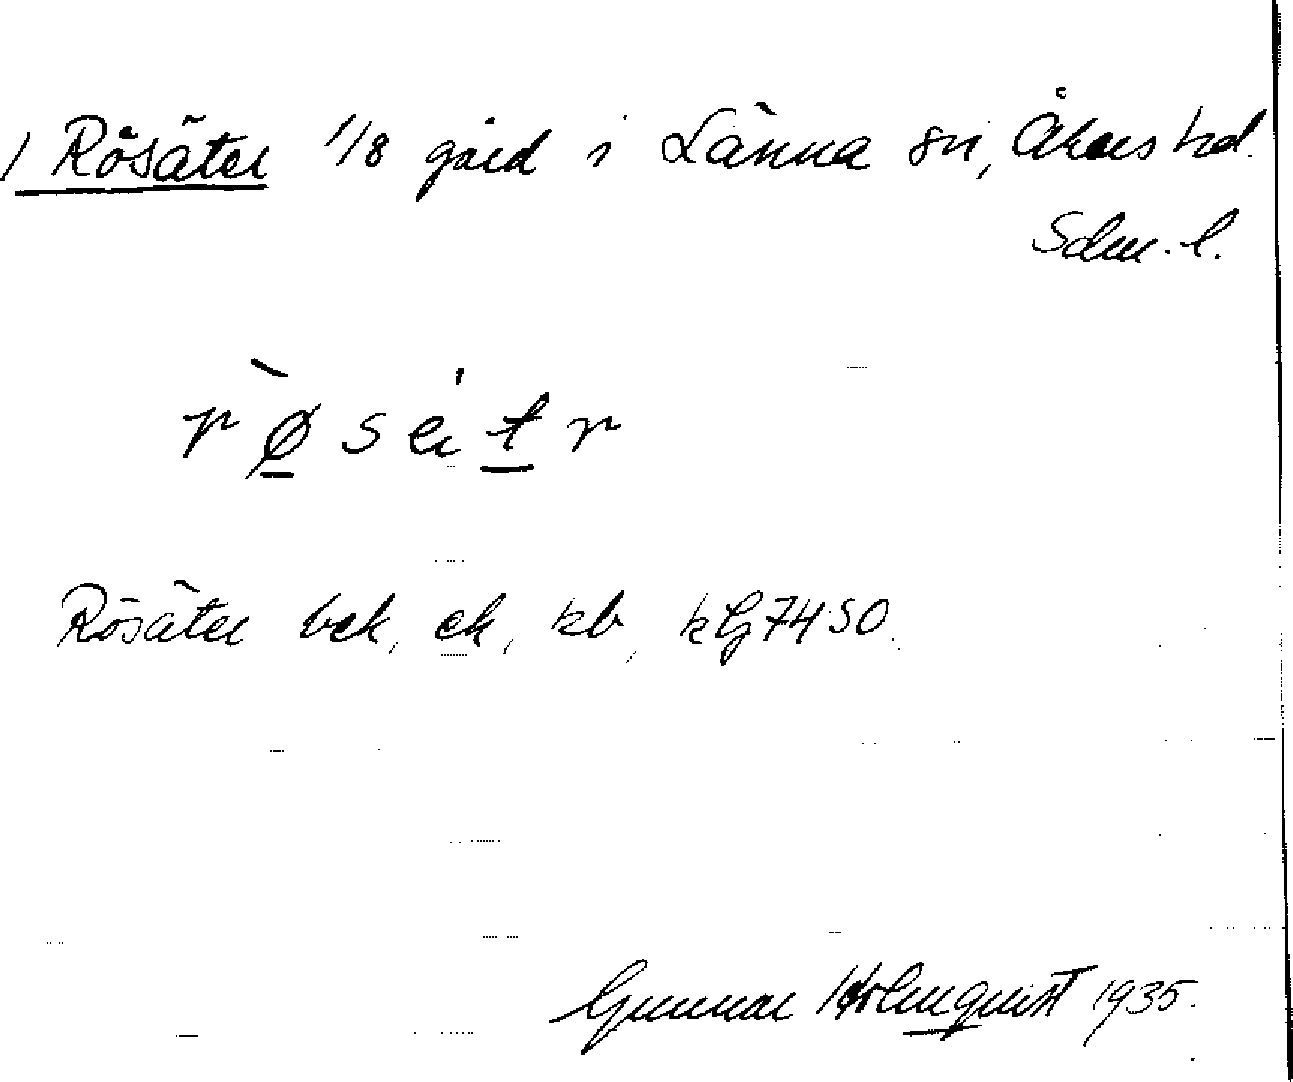 1) Rösäter 1/8 gård i Länna sn, Åkers hd.
Sdm. l.
Rösäter bek, ek, kb,
Gunnar Holmquist 1935.